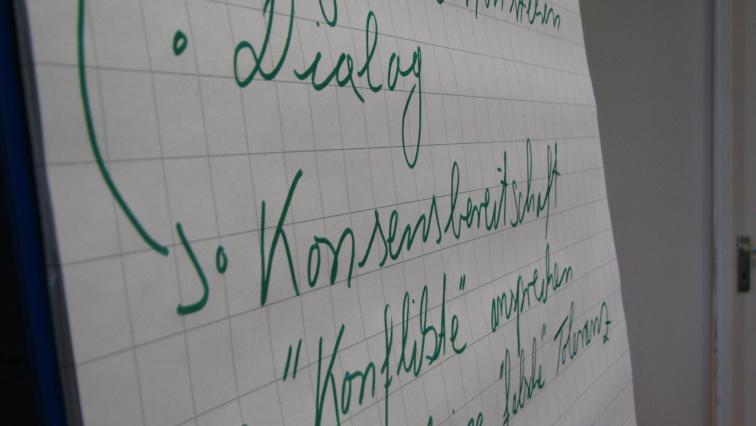 Dialog
Konsensbereitschaft
"Konflikte" ansprechen
Toleranz